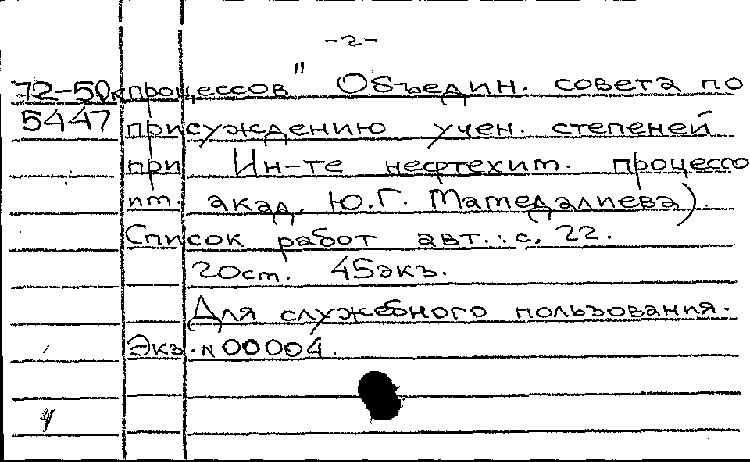 -2-
72-50к процессов" Объедин. совета по
5447 присуждению учен. степеней
при Ин-те нефтехим. процессо
им. акад. Ю.Г. Мамедалиева).
Список работ авт.: с. 22.
20см. 45экз.
Для служебного пользования.
Экз. N 00004.